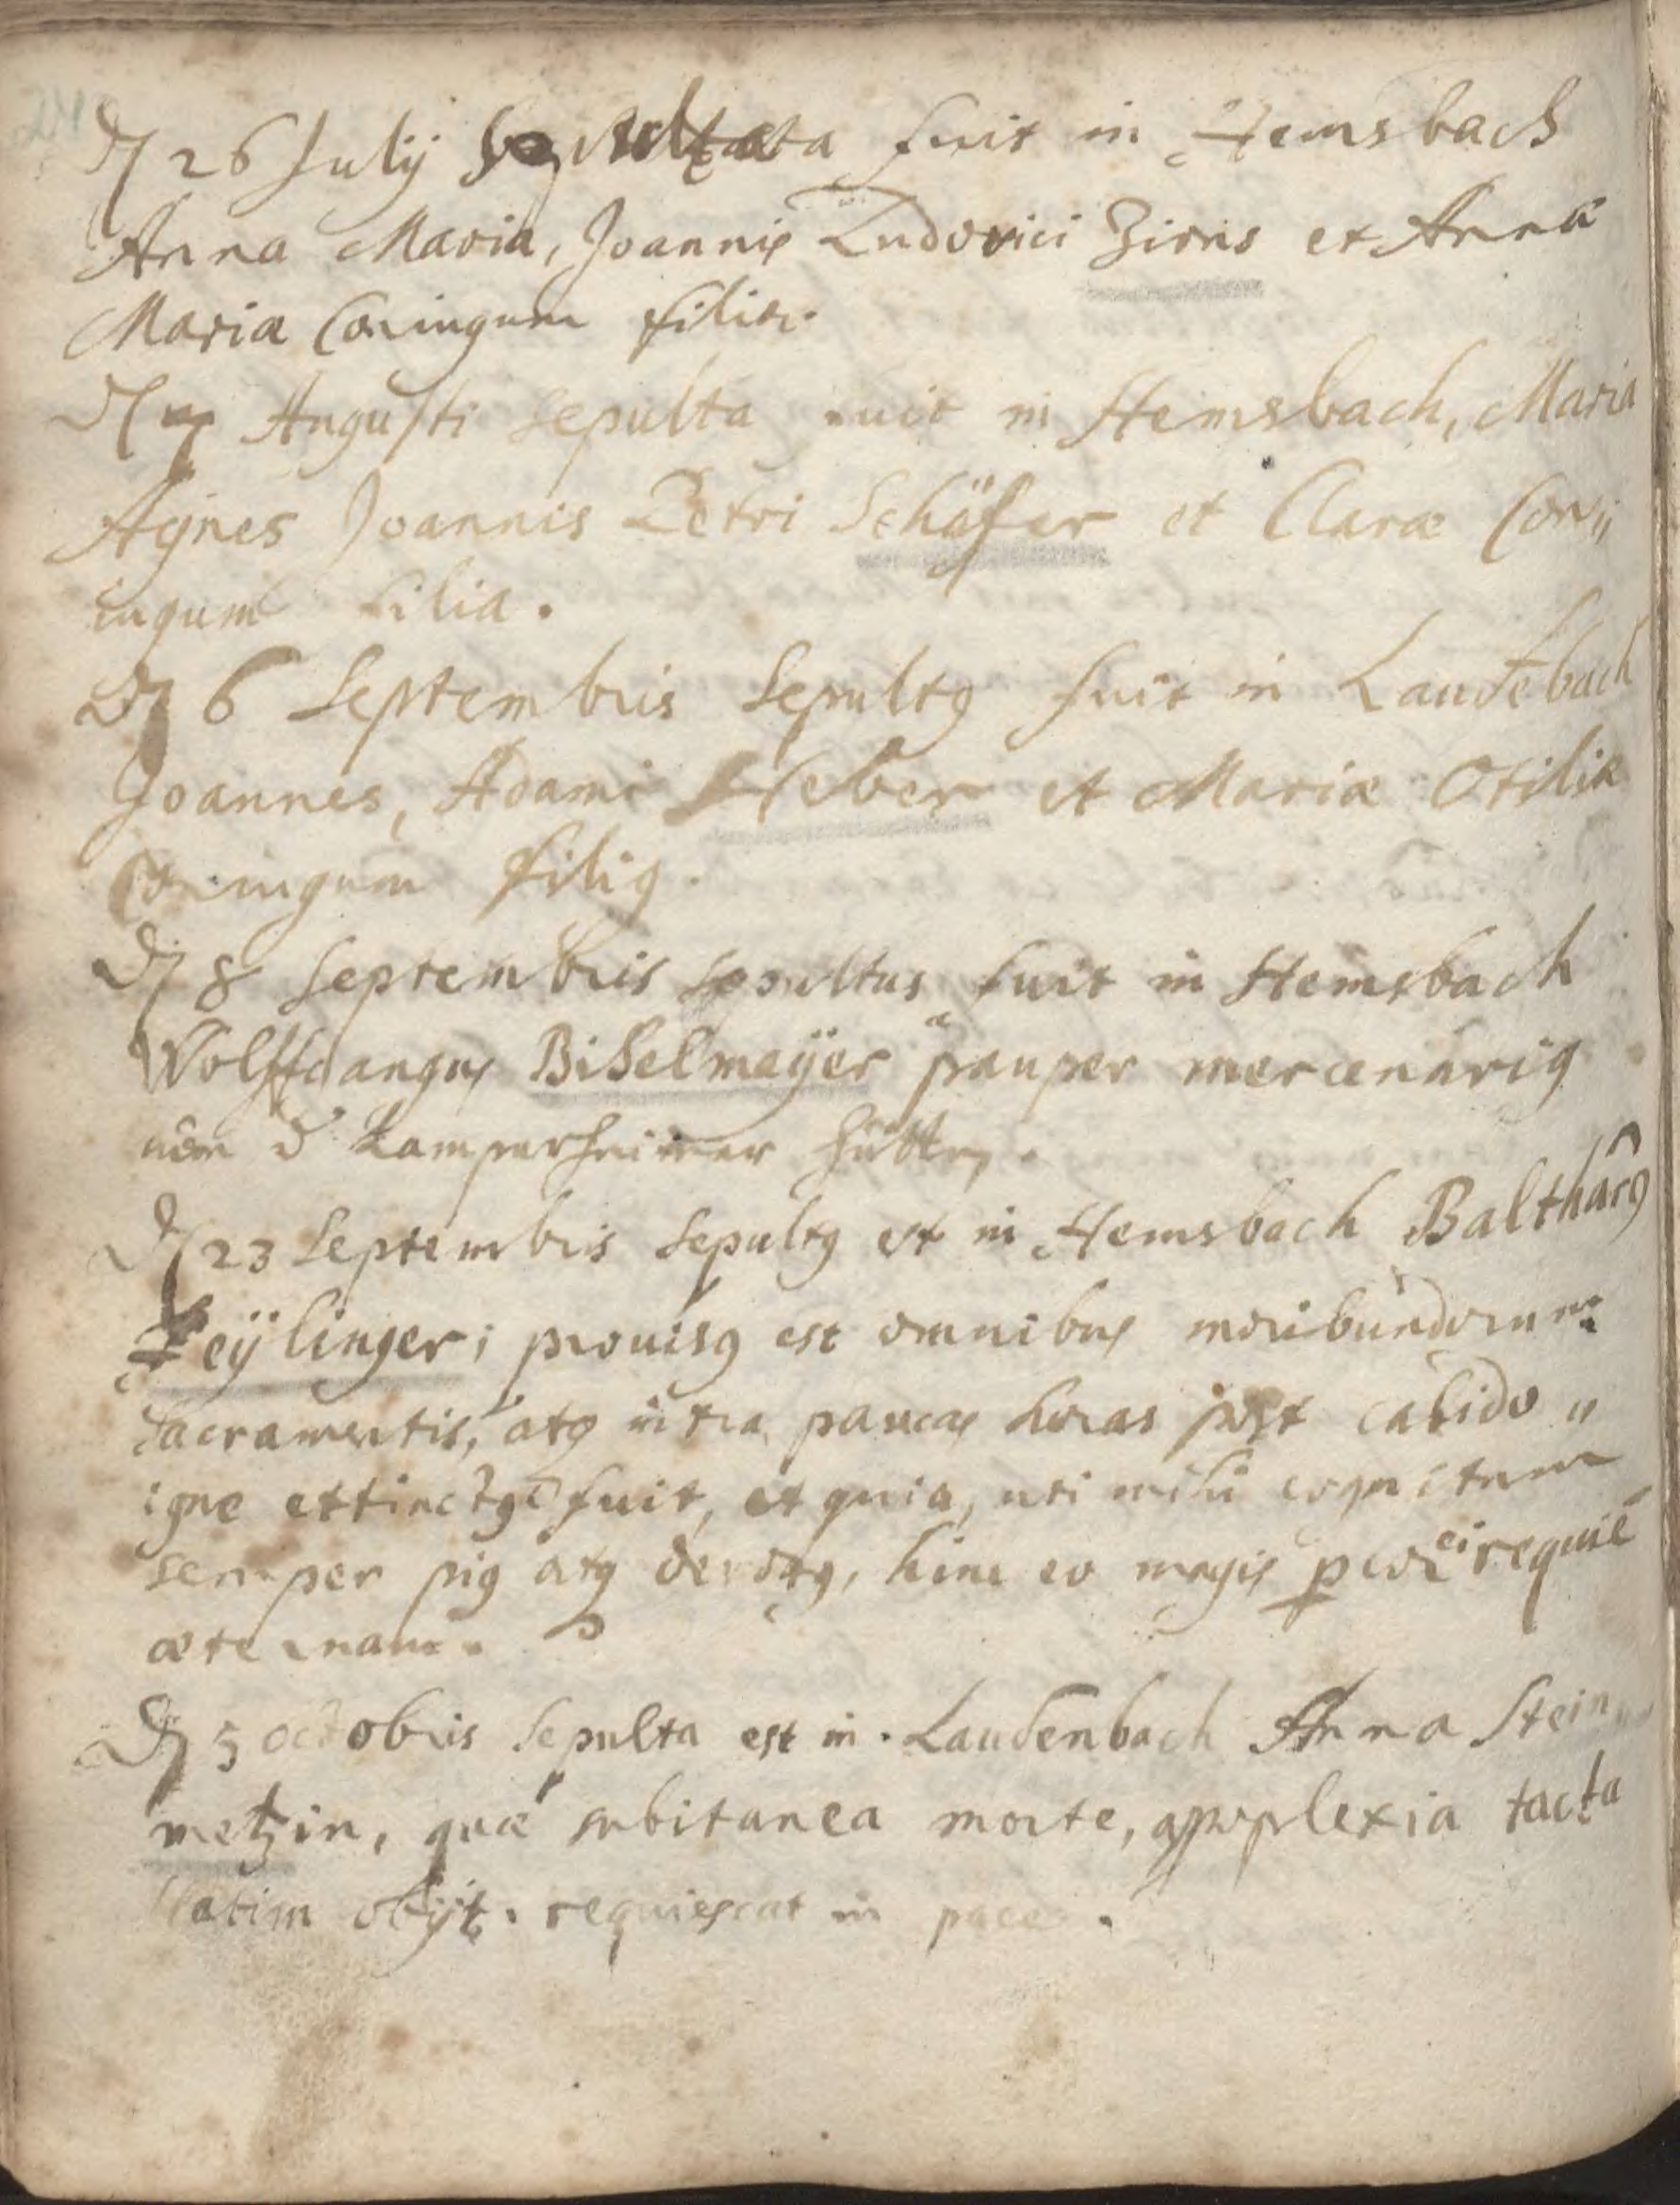 26 Julÿ Sepulta fuit in Hemsbach
Anna Maria, Joannis Ludovici Zirns et Anna
Maria Coniugum filia.
7 Augusti Sepulta fuit in Hemsbach, Maria
Agnes Joannis Petri Schäfer et Claræ Con„
iugum filia.
6 Septembris Sepultꝰ fuit in Laudebach
Joannes, Adami Heber et Mariæ Otiliæ
Coniugum filiꝰ.
8 Septembris sepultus fuit in Hemsbach
Wolffgangus Bißelmeÿer pauper mercenariꝰ
von d Lamperheimer hütten.
23 Septembris Sepultꝰ est in Hemsbach
Heÿlinger; prouisꝰ est omnibus moribundorum
Sacramentis, atꝙ intra paucas horas post calido„
igne extinctꝰ fuit, et quia, uti mihi cognitum
semper piꝰ atꝙ devotꝰ, hinc eo magis ei requiē
æternam.
5 octobris Sepulta est in Laudenbach Anna Stein„
metzin, quæ subitanea morte, apoplexia tacta
statim obÿt. requiescat in pace.